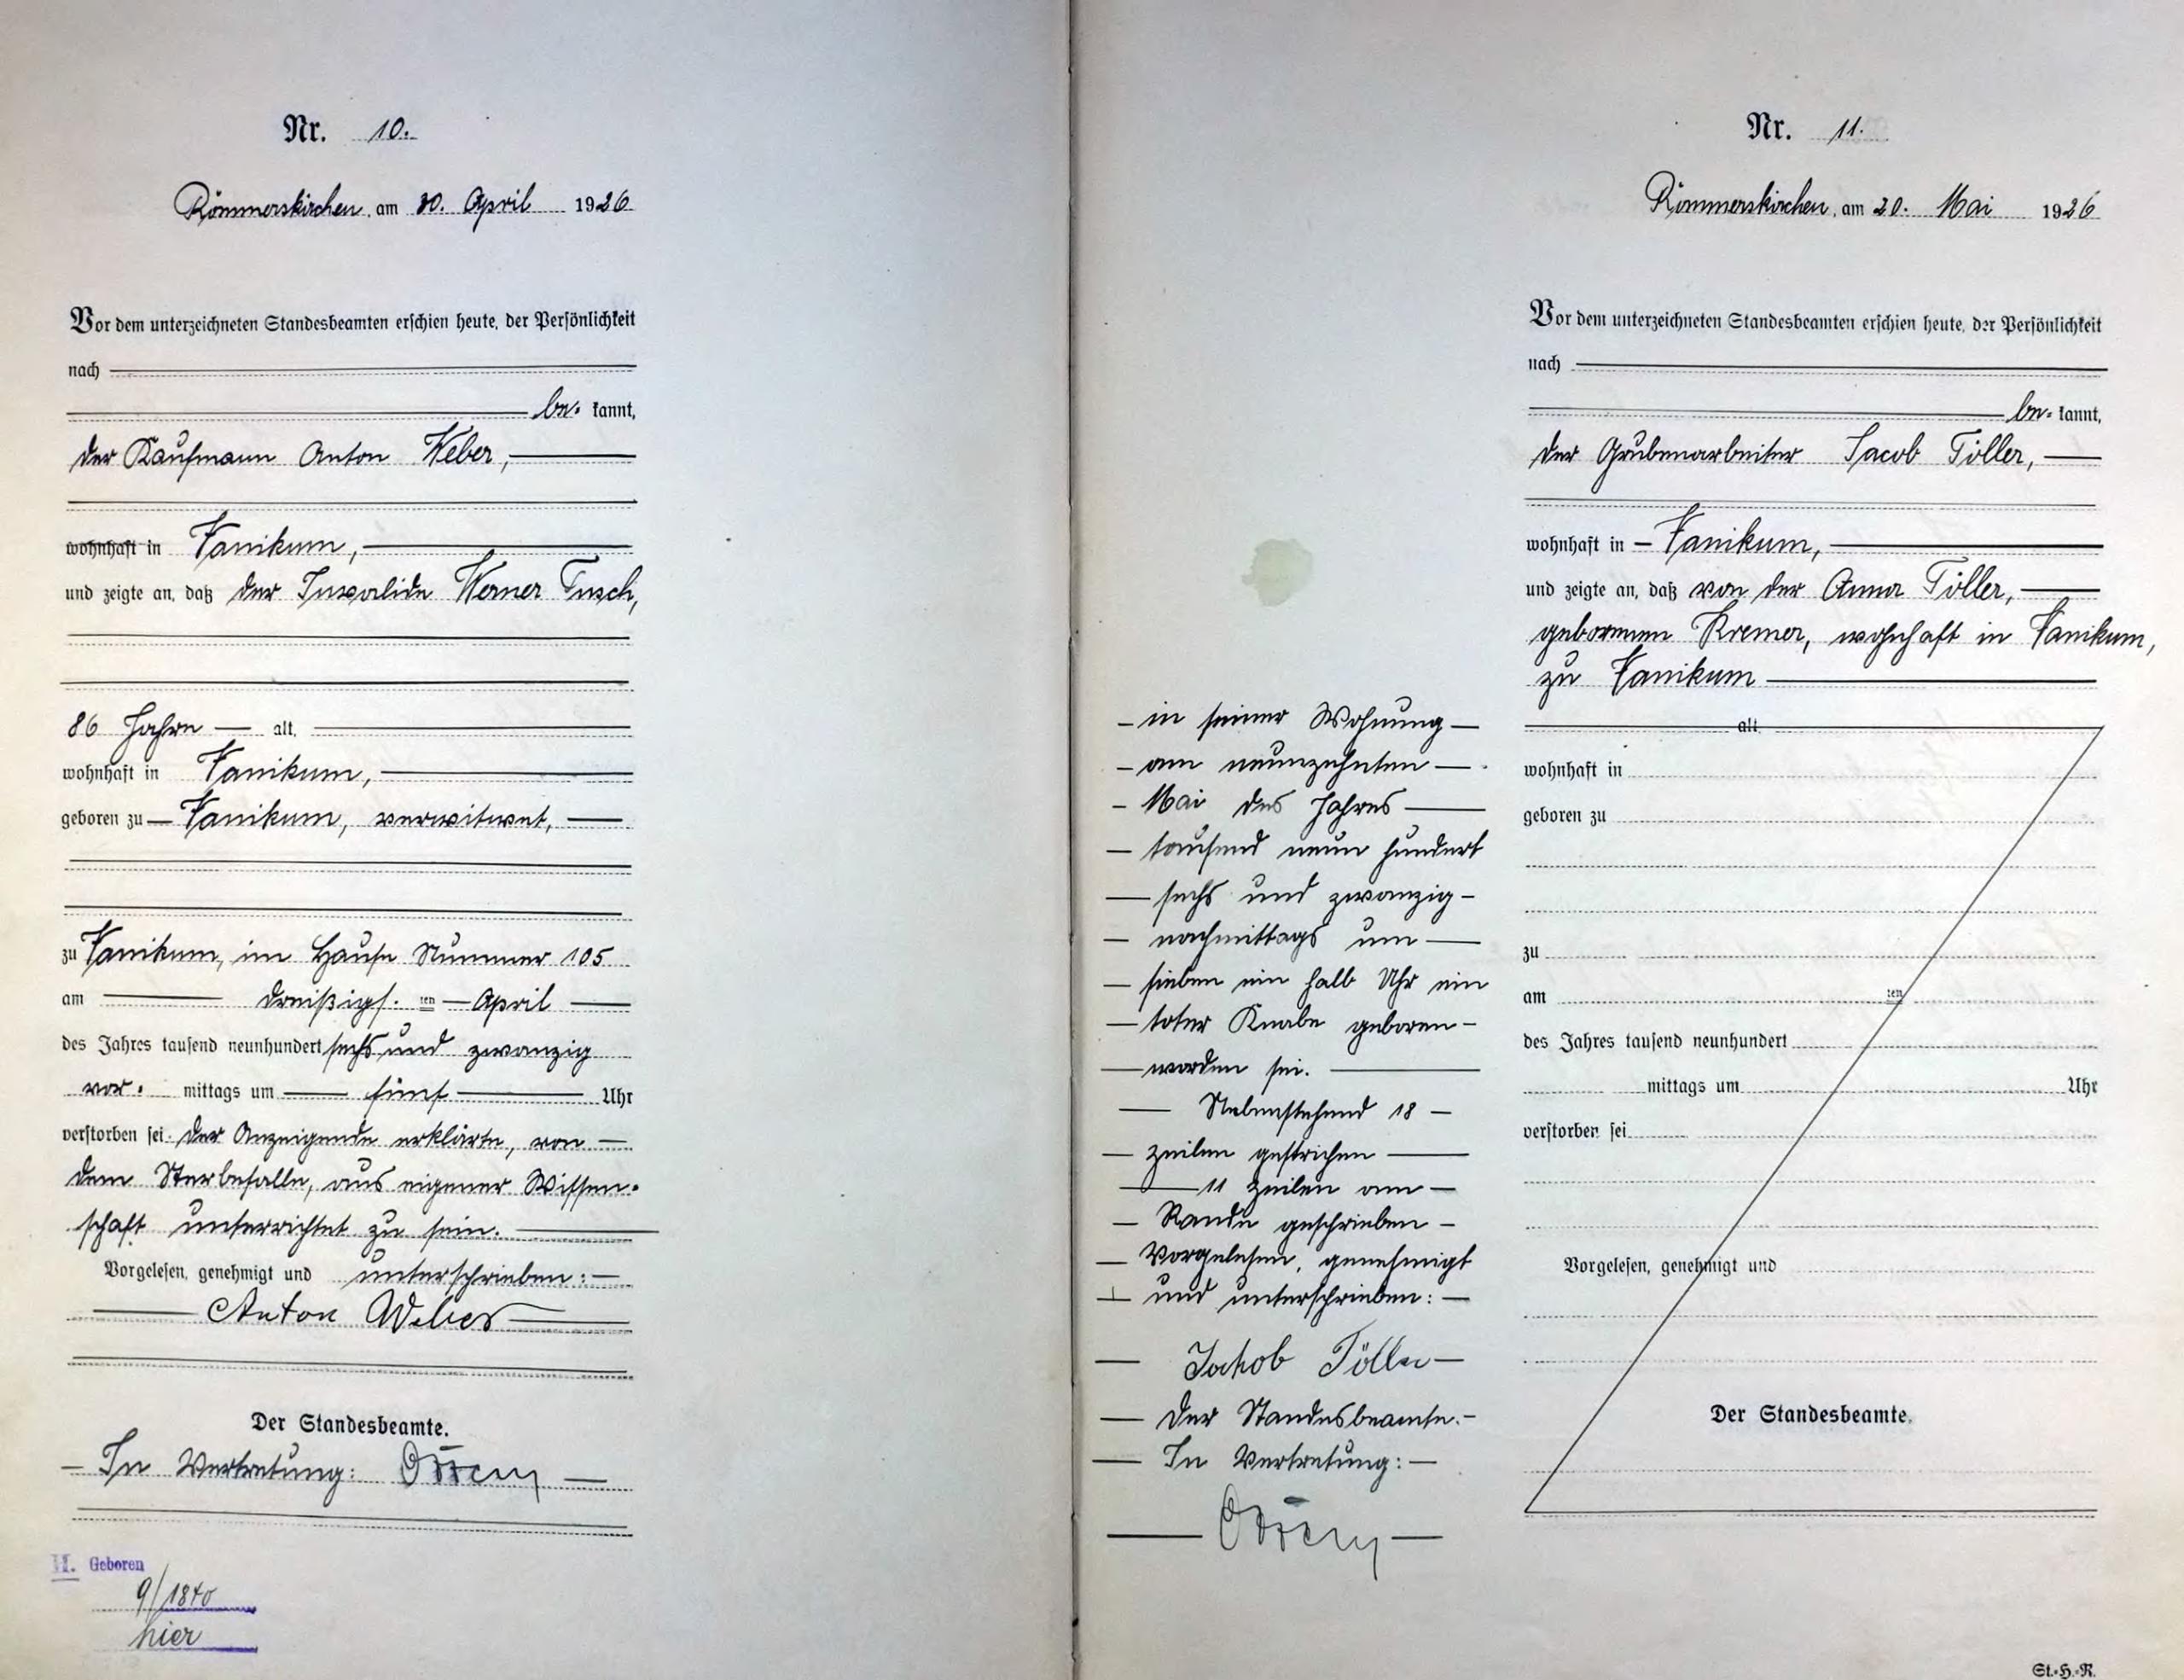 Nr. 10.
Rommerskirchen, am 30. April 1926
Vor dem unterzeichneten Standesbeamten erschien heute, der Persönlichkeit
nach
be- kannt,
der Kaufmann Anton Weber,
wohnhaft in Vanikum,
und zeigte an, daß der Invalide Werner Tusch,
86 Jahre alt,
wohnhaft in Vanikum,
geboren zu Vanikum, verwitwet,
zu Vanikum, im Hause Nummer 105
am dreißigs. ten April
des Jahres tausend neunhundert sechs und zwanzig
vor- mittags um fünf Uhr
verstorben sei. Der Anzeigende erklärte, von
dem Sterbefalle, aus eigener Wissen-
schaft unterrichtet zu sein.
Vorgelesen, genehmigt und unterschrieben:
Anton Weber
Der Standesbeamte.
In Vertretung:
H. Geboren
9/1840
hier
Nr. 11.
Rommerskirchen, am 20. Mai 1926
Vor dem unterzeichneten Standesbeamten erschien heute, der Persönlichkeit
nach
be- kannt,
der Grubenarbeiter Jacob Töller,
wohnhaft in Vanikum,
und zeigte an, daß von der Anna Töller,
geborenen Kremer, wohnhaft in Vanikum,
zu Vanikum
alt
wohnhaft in
geboren zu
zu
am ten
des Jahres tausend neunhundert
mittags um Uhr
verstorben sei
Vorgelesen, genehmigt und
Der Standesbeamte.
in seiner Wohnung
am neunzehnten
Mai des Jahres
tausend neun hundert
sechs und zwanzig
nachmittags um
sieben ein halb Uhr ein
toter Knabe geboren
worden sei.
Nebenstehend 18
Zeilen gestrichen
11 Zeilen am
Rande geschrieben
Vorgelesen, genehmigt
und unterschrieben:
Jakob Töller
Der Standesbeamte.
In Vertretung:
St.=H.=R.